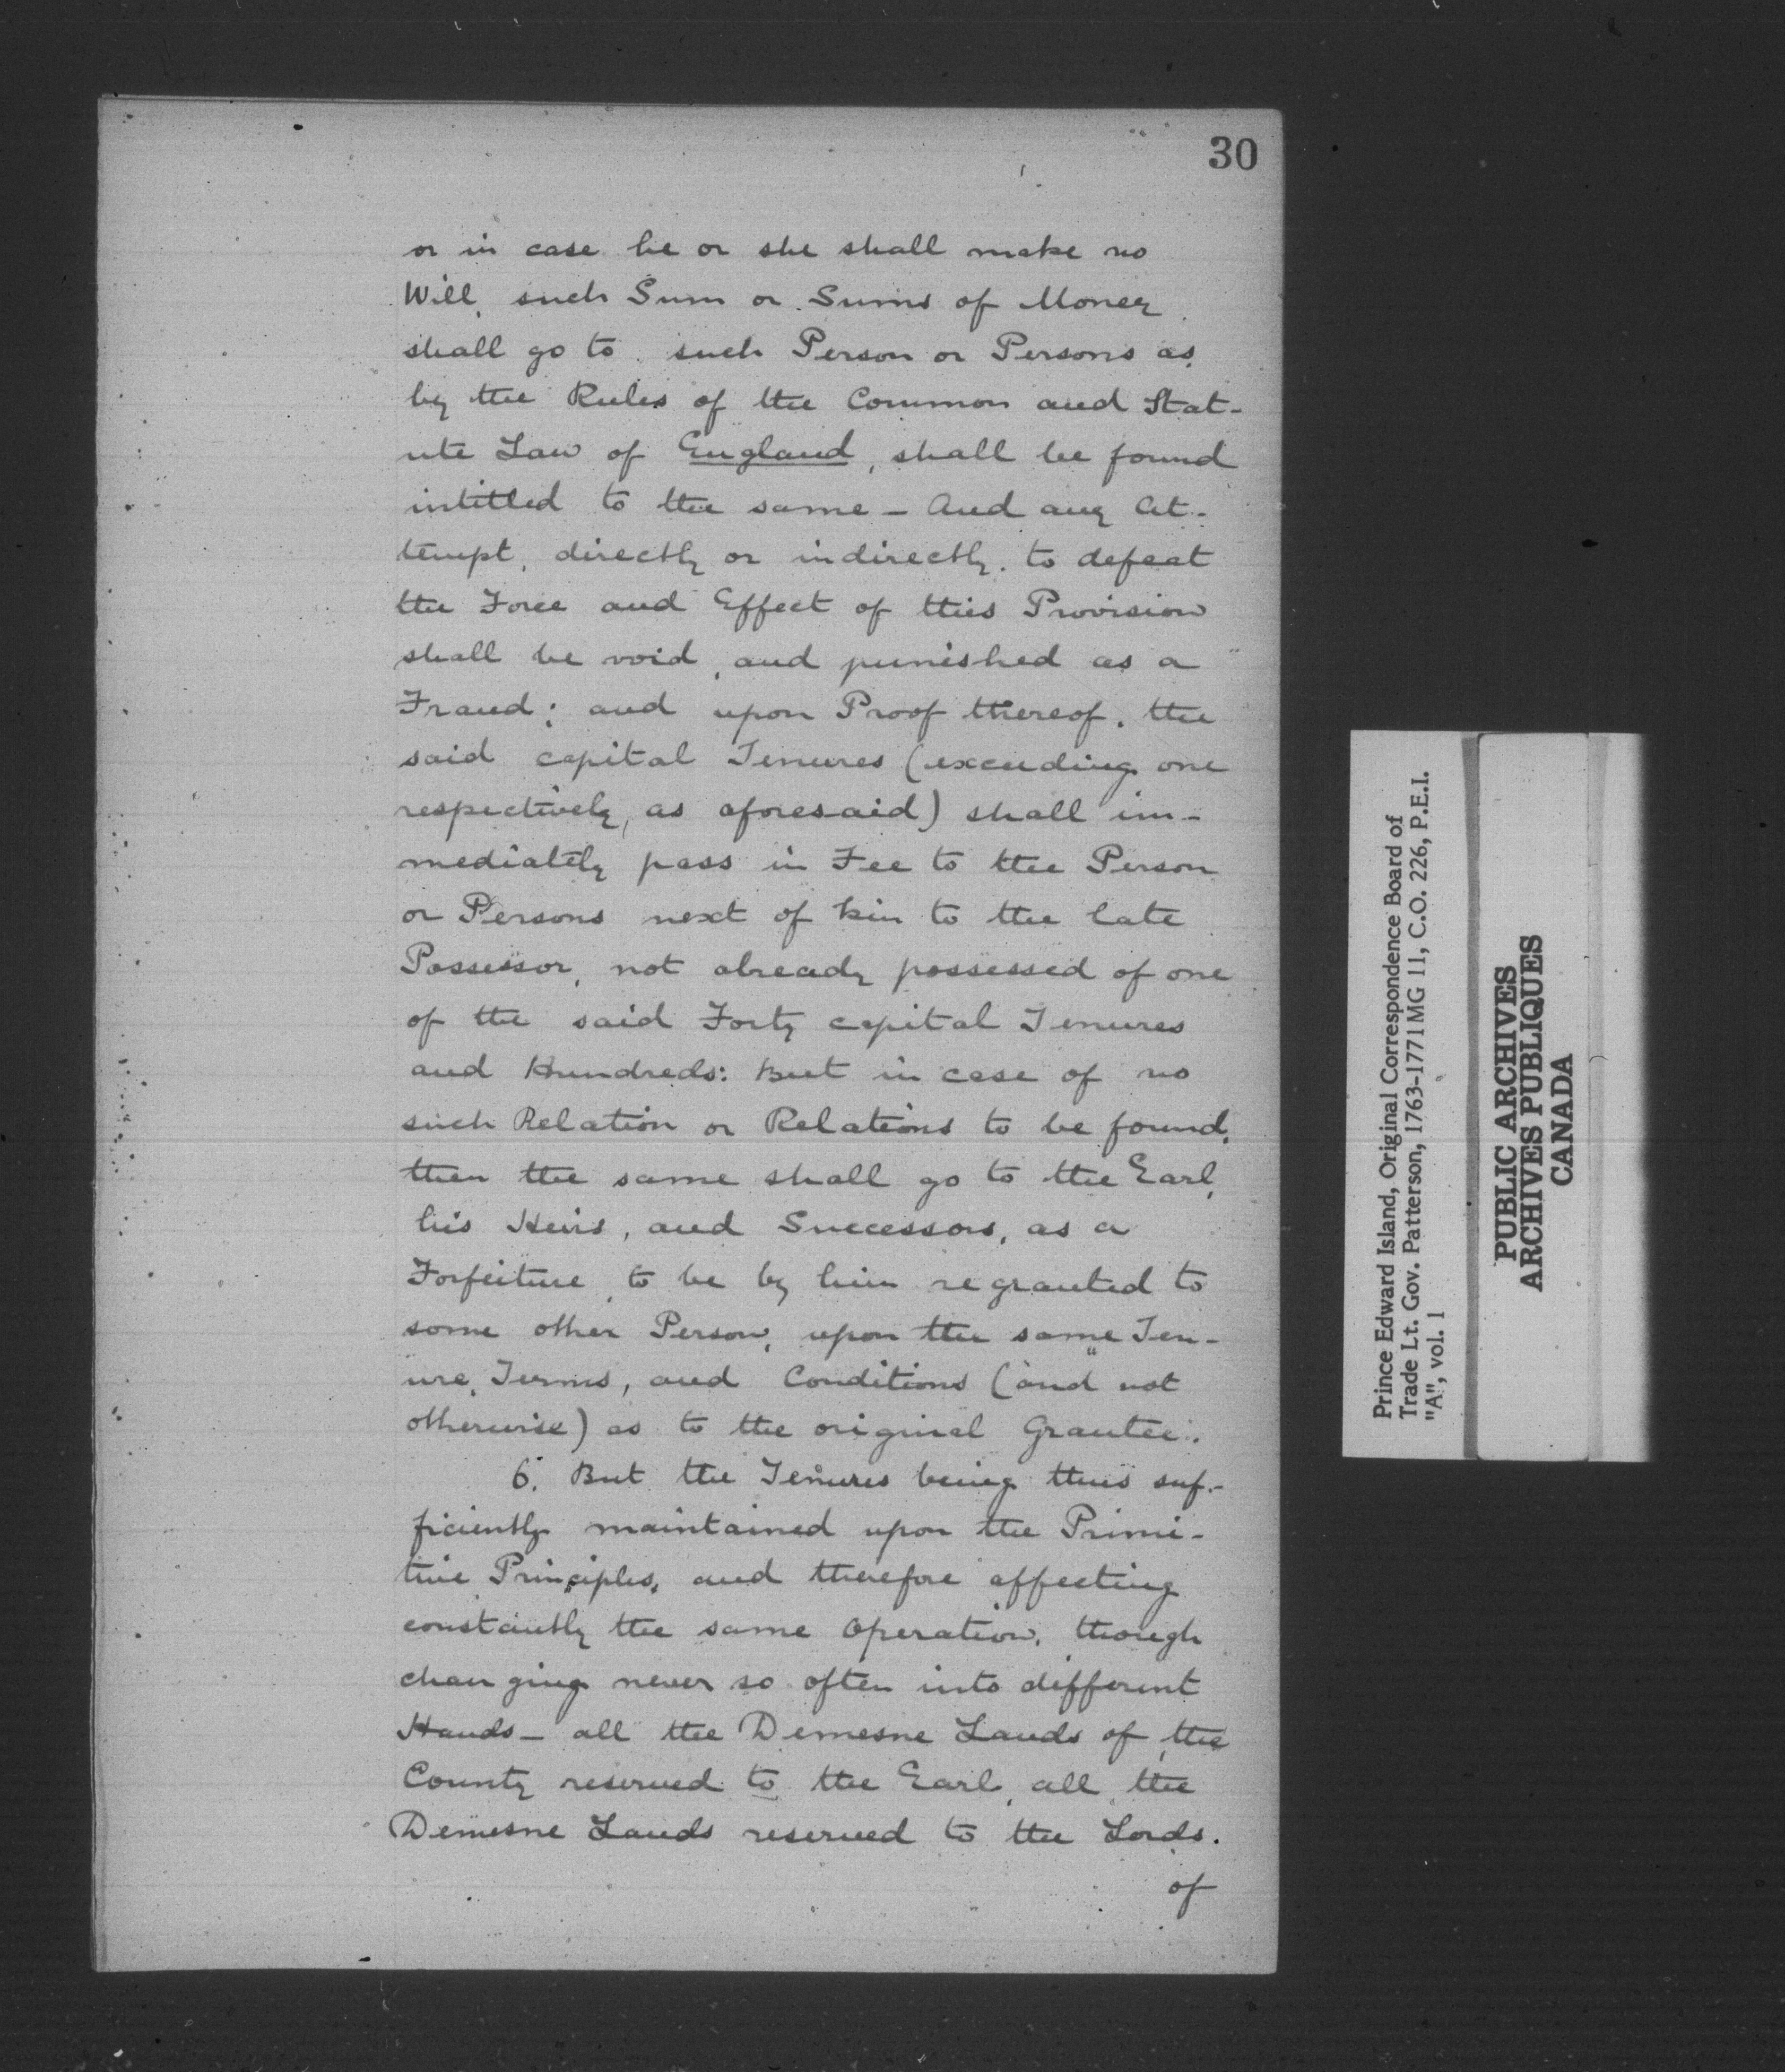 30
or in case he or she shall make no
Will, such Sum or Sums of Money
shall go to such Person or Persons as,
by the Rules of the Common and Stat-
ute Law of England, shall be found
intitled to the same - And any At-
tempt, directly or indirectly, to defeat
the Force and Effect of this Provision
shall be void, and punished as a
Fraud; and upon Proof thereof, the
said capital Tenures (exceeding one
respectively, as aforesaid) shall im-
mediately pass in Fee to the Person
or Persons next of kin to the late
Possessor, not already possessed of one
of the said Forty capital Tenures
and Hundreds: But in case of no
such Relation or Relations to be found,
then the same shall go to the Earl,
his Heirs, and Successors, as a
Forfeiture, to be by him regranted to
some other Person, upon the same Ten-
ure, Terms, and Conditions (and not
otherwise) as to the original Grantee.
6. But the Tenures being thus suf-
ficiently maintained upon the Primi-
tive Principles, and therefore affecting
constantly the same Operation, though
changing never so often into different
Hands - all the Demesne Lands of the
County reserved to the Earl, all the
Demesne Lands reserved to the Lords.
of
Prince Edward Island, Original Correspondence Board of
Trade Lt. Gov. Patterson, 1763-1771 MG 11, C.O. 226, P.E.I.
"A", vol. 1
PUBLIC ARCHIVES
ARCHIVES PUBLIQUES
CANADA